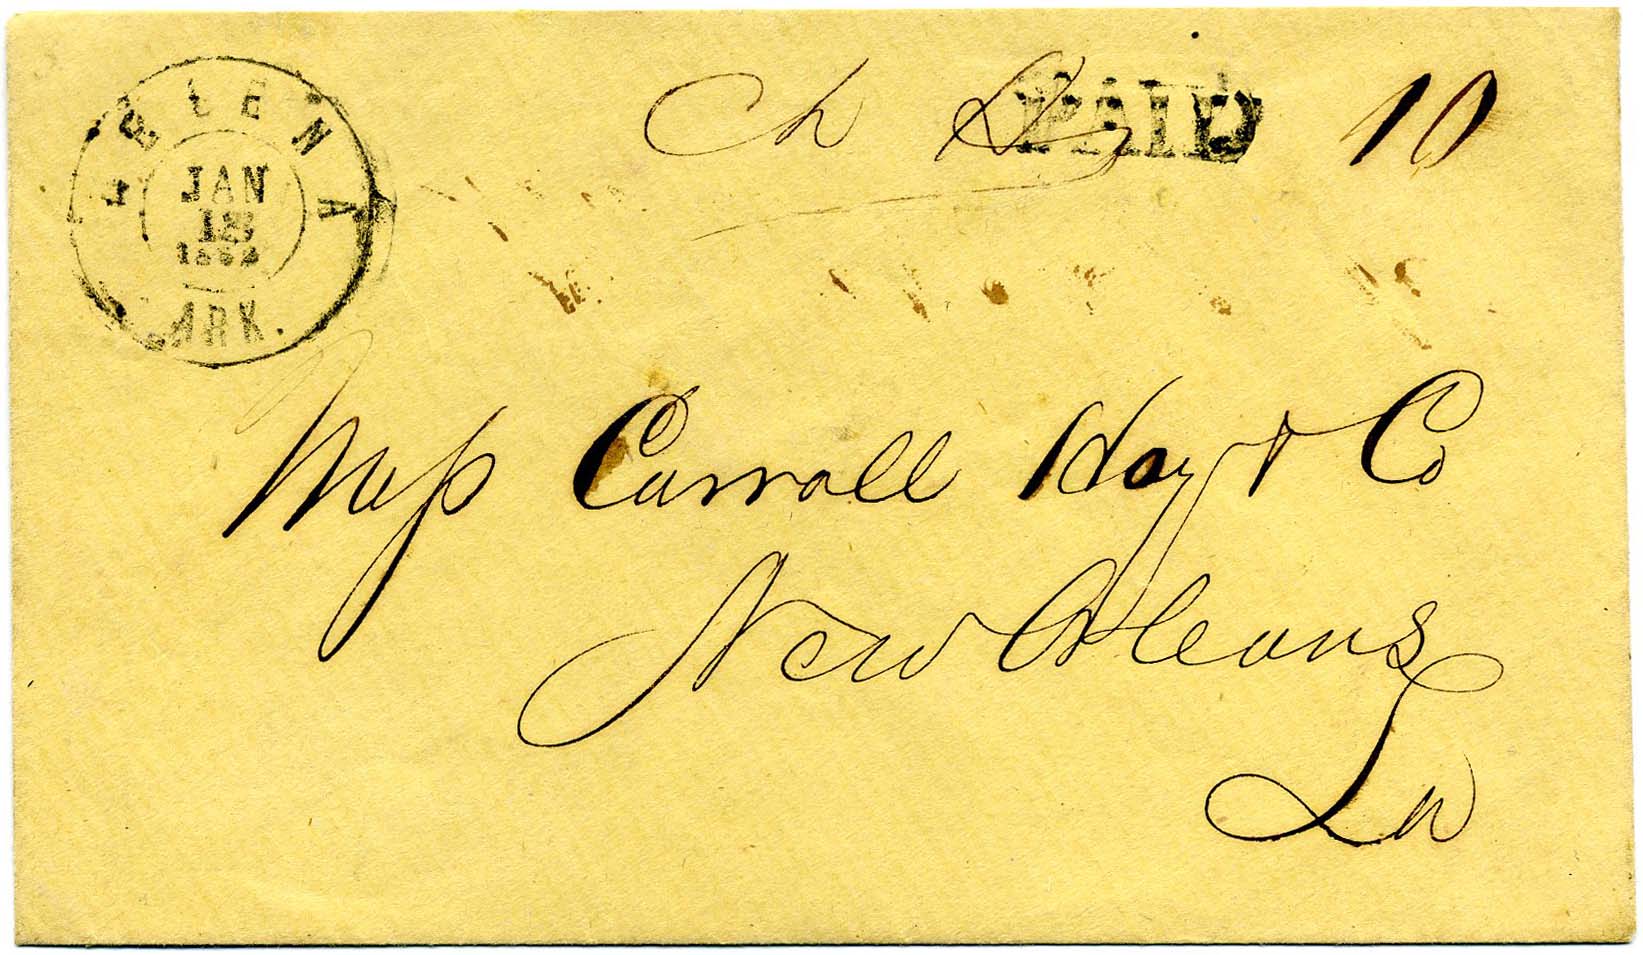 HELENA
JAN
1862
ARK.
Ch
PAID
10
Mess Carroll Hoy & Co
New Orleans
La